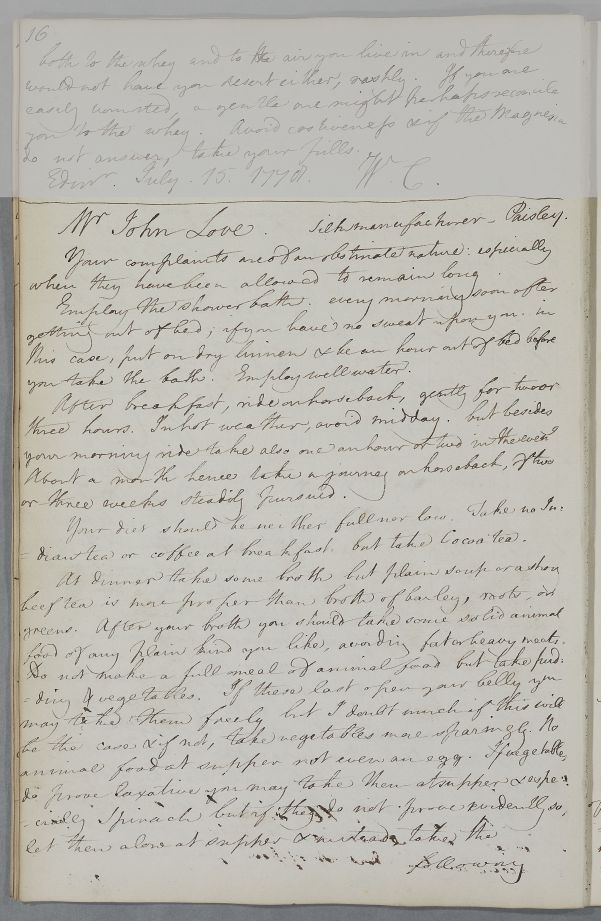 16
both to the whey and to the air you live in and therefore
would not have you desert either, rashly. If you are
easily vomited a gentle one might perhaps reconcile
you to the whey. Avoid costiveness & if the Magnesia
do not answer, take your pills.
Edinr. July. 15. 1778. W. C.
Mr John Love. Silk manufacturer - Paisley.
Your complaints are of an obstinate nature: especially
when they have been allowed to remain long.
Employ the shower bath. every morning soon after
getting out of bed; if you have no sweat upon you. in
this case, put on dry linnen & be an hour out of bed before
you take the bath. Employ well water.
After breakfast, ride on horseback, gently for two or
three hours. In hot weather, avoid midday. but besides
your morning ride take also one an hour or two in the eveng
About a month hence take a journey on horseback, of two
or three weeks steadily pursued.
Your diet should be neither full nor low. Take no In:
=dian tea or coffee at breakfast. but take Cocoa tea.
At dinner take some broth but plain soup or a
beef tea is more proper than broth of barley, roots, or
greens. After your broth you should take some solid animal
food of any plain kind you like, avoiding fat or heavy meats.
Do not make a full meal of animal food but take pud:
=ding & vegetables. If these last open your belly you
may take them freely but I doubt much if this will
be the case & if not, take vegetables more sparingly. No
animal food at supper not even an egg. If vegetables,
do prove laxative you may take them at supper & espe:
=cially Spinach but if they do not prove evidently so,
let them alone at supper & instead take the
following